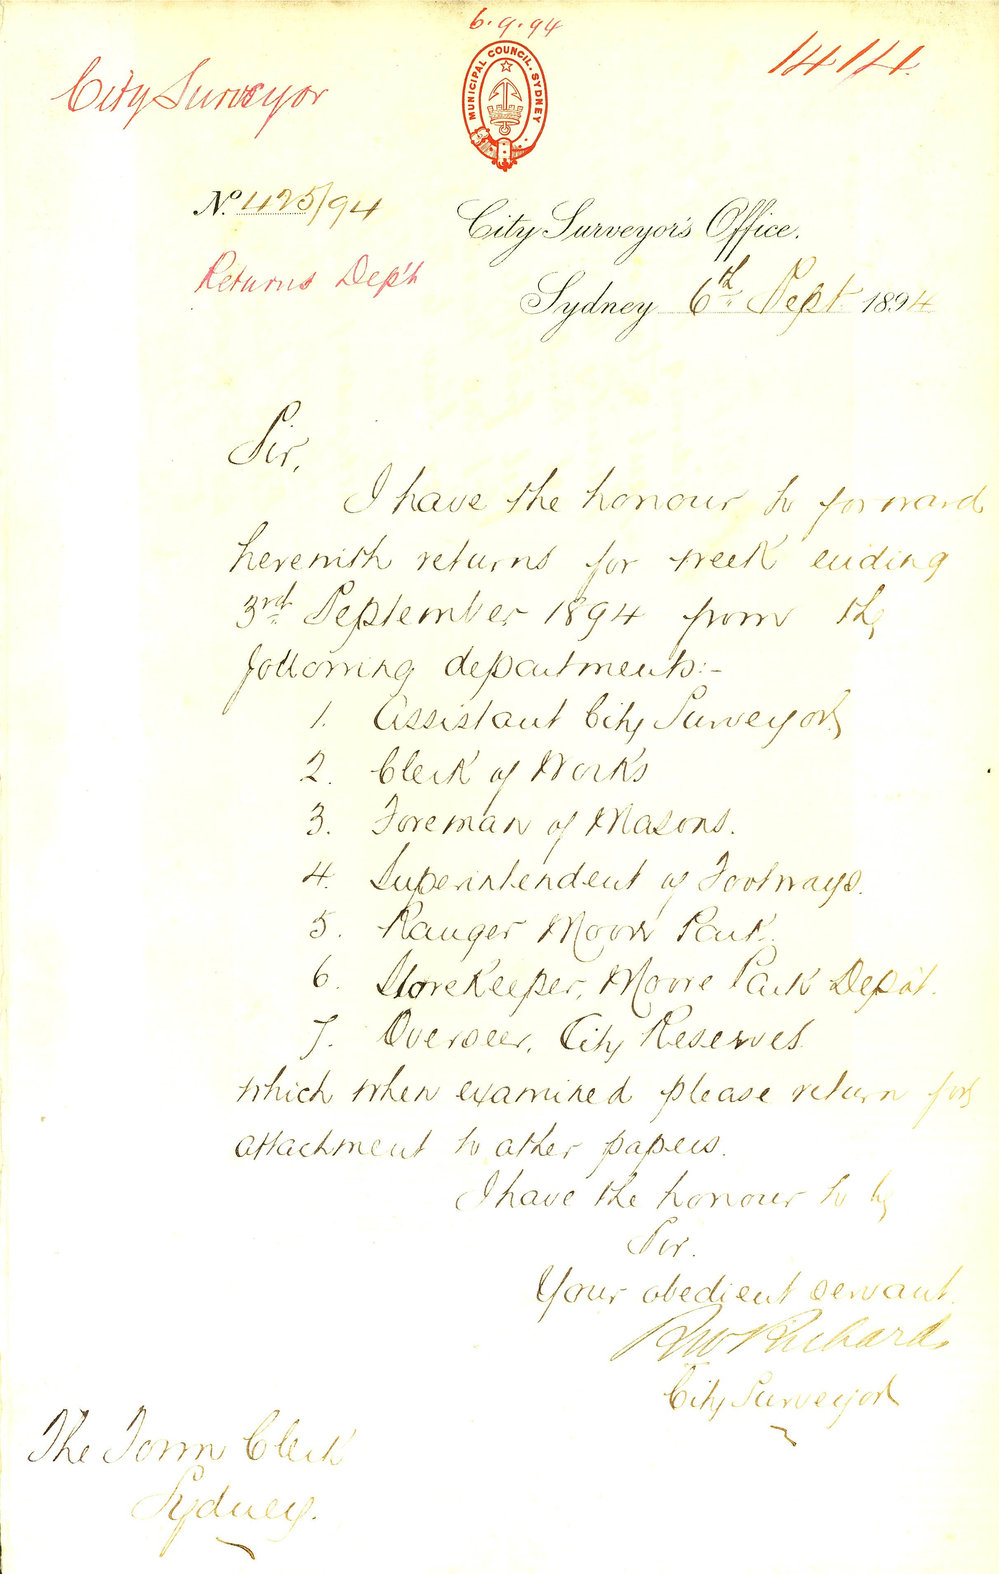 6.9.94
1414.
City Surveyor
MUNICIPAL COUNCIL. SYDNEY
No. 425/94
City Surveyor's Office.
Returns Dep'ts
Sydney 6th Sept 1894
Sir,
I have the honour to forward
herewith returns for week ending
3rd September 1894 from the
following departments:-
1. Assistant City Surveyor
2. Clerk of Works
3. Foreman of Masons.
4. Superintendent of Footways.
5. Ranger Moore Park.
6. Storekeeper, Moore Park Depôt.
7. Overseer, City Reserves
which when examined please return for
attachment to other papers.
I have the honour to be
Sir.
Your obedient servant.
RW Richards
City Surveyor
The Town Clerk
Sydney.